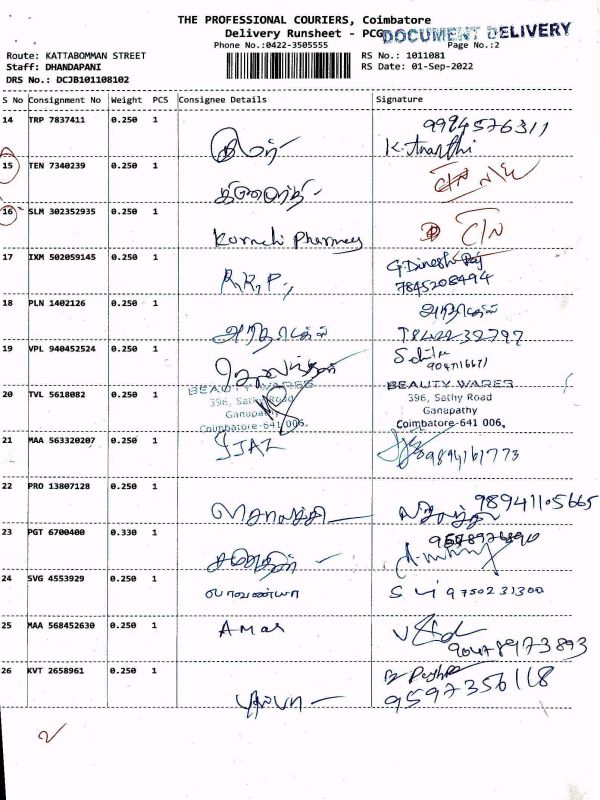 THE PROFESSIONAL COURIERS, Coimbatore
Delivery Runsheet - PCG
DOCUMENT DELIVERY
Phone No.:0422-3505555
Page No.:2
Route: KATTABOMMAN STREET
RS No.: 1011081
Staff: DHANDAPANI
RS Date: 01-Sep-2022
DRS No.: DCJB101108102
S No Consignment No Weight PCS Consignee Details Signature
14 TRP 7837411 0.250 1 9994576311
K. Ananthi
15 TEN 7340239 0.250 1
16 SLM 302352935 0.250 1 C/N
Pharmacy
17 IXM 502059145 0.250 1 G. Dinesh Raj
R.R.P. 7845208494
18 PLN 1402126 0.250 1
19 VPL 940452524 0.250 1
20 TVL 5618082 0.250 1
BEAUTY WARES BEAUTY WARES
396, Sathy Road 396, Sathy Road
Ganapathy Ganapathy
Coimbatore-641 006. Coimbatore-641 006.
21 MAA 563320207 0.250 1 IJAZ 9894161773
22 PRO 13807128 0.250 1 98941105665
23 PGT 6700400 0.330 1
24 SVG 4553929 0.250 1 லாவண்யா 9750231300
25 MAA 568452630 0.250 1 Amar
90478973893
26 KVT 2658961 0.250 1
புஷ்பா 9597356118
2